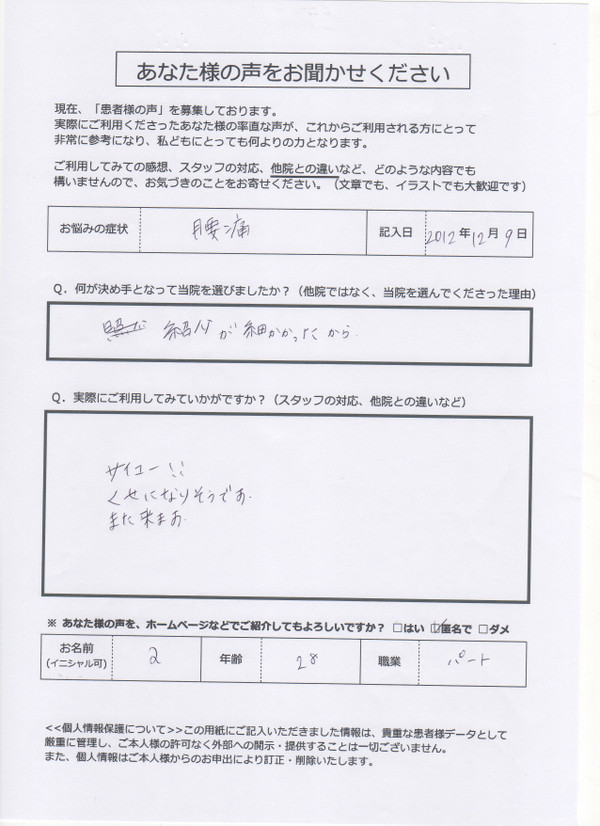 あなた様の声をお聞かせください
現在、「患者様の声」を募集しております。
実際にご利用くださったあなた様の率直な声が、これからご利用される方にとって
非常に参考になり、私どもにとっても何よりの力となります。
ご利用してみての感想、スタッフの対応、他院との違いなど、どのような内容でも
構いませんので、お気づきのことをお寄せください。（文章でも、イラストでも大歓迎です）
お悩みの症状 腰痛 記入日 2012年12月9日
Q．何が決め手となって当院を選びましたか？（他院ではなく、当院を選んでくださった理由）
紹介が細かかったから
Q．実際にご利用してみていかがですか？（スタッフの対応、他院との違いなど）
サイコー!!
くせになりそうです。
また来ます。
※ あなた様の声を、ホームページなどでご紹介してもよろしいですか？ □はい ☑匿名で □ダメ
お名前 2 年齢 28 職業 パート
(イニシャル可)
<<個人情報保護について>>この用紙にご記入いただきました情報は、貴重な患者様データとして
厳重に管理し、ご本人様の許可なく外部への開示・提供することは一切ございません。
また、個人情報はご本人様からのお申出により訂正・削除いたします。